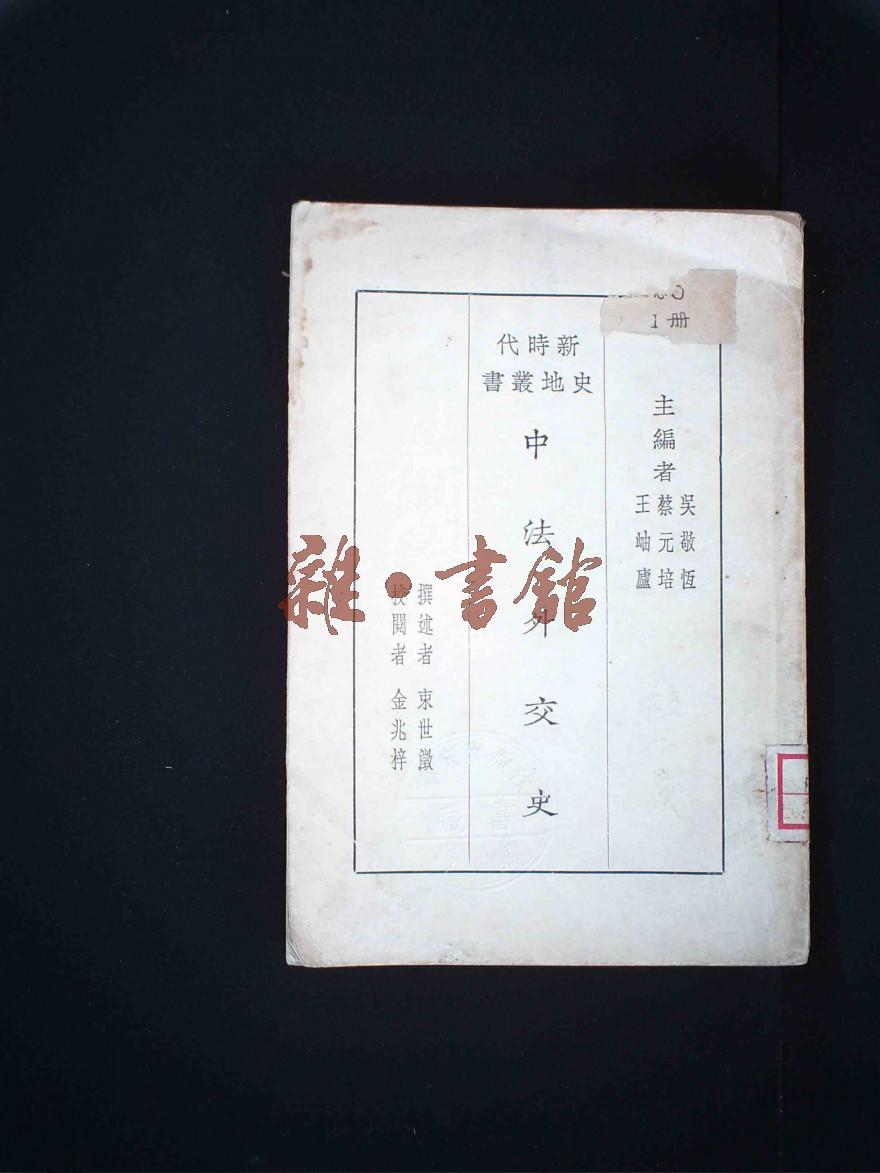 1 册
主編者
吳敬恆
蔡元培
王岫廬
新時代
史地叢書
中法外交史
撰述者 束世澂
校閱者 金兆梓
雜·書館
書